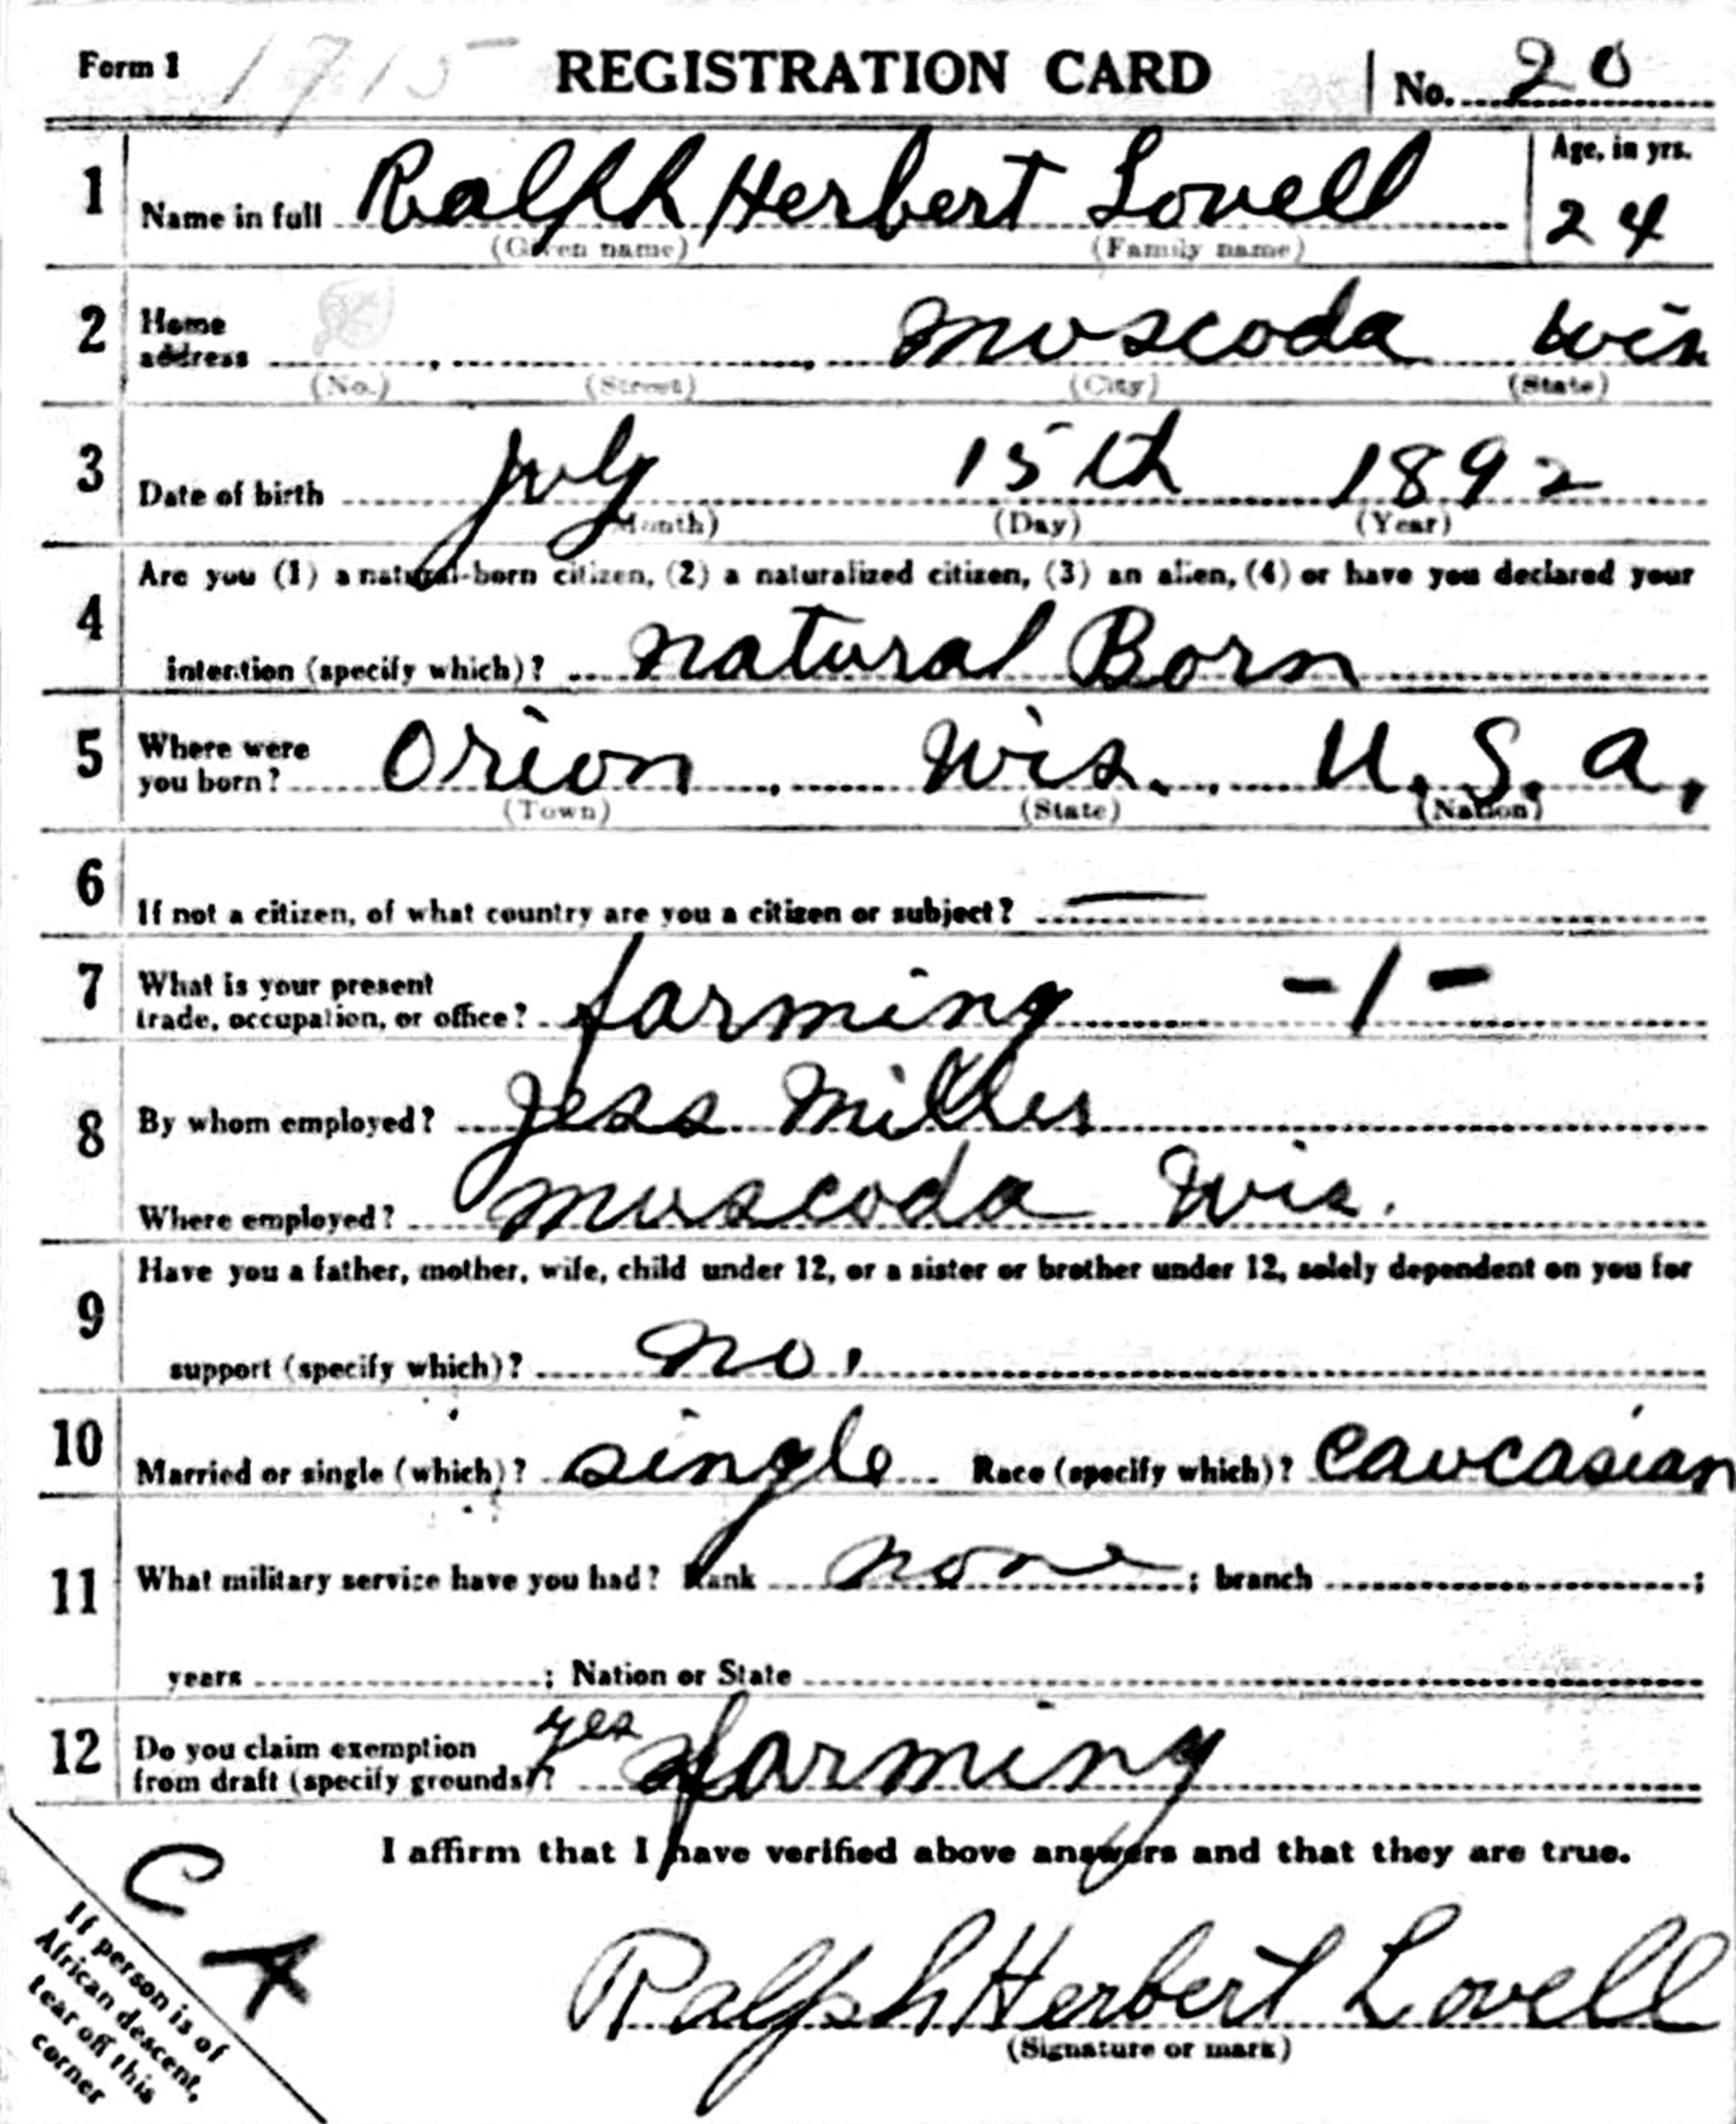 Form 1 1715 REGISTRATION CARD No. 20
1 Name in full Ralph Herbert Lovell Age, in yrs. 24
(Given name) (Family name)
2 Home address Muscoda Wis
(No.) (Street) (City) (State)
3 Date of birth July 15th 1892
(Month) (Day) (Year)
4 Are you (1) a natural-born citizen, (2) a naturalized citizen, (3) an alien, (4) or have you declared your
intention (specify which)? Natural Born
5 Where were you born? Orion Wis. U.S.A.
(Town) (State) (Nation)
6 If not a citizen, of what country are you a citizen or subject? —
7 What is your present
trade, occupation, or office? farming -1-
8 By whom employed? Jess Miller
Where employed? Muscoda Wis.
9 Have you a father, mother, wife, child under 12, or a sister or brother under 12, solely dependent on you for
support (specify which)? no.
10 Married or single (which)? single Race (specify which)? Caucasian
11 What military service have you had? Rank none ; branch ;
years ; Nation or State
12 Do you claim exemption
from draft (specify grounds)? yes farming
I affirm that I have verified above answers and that they are true.
C
Ralph Herbert Lovell
(Signature or mark)
If person is of
African descent,
tear off this
corner